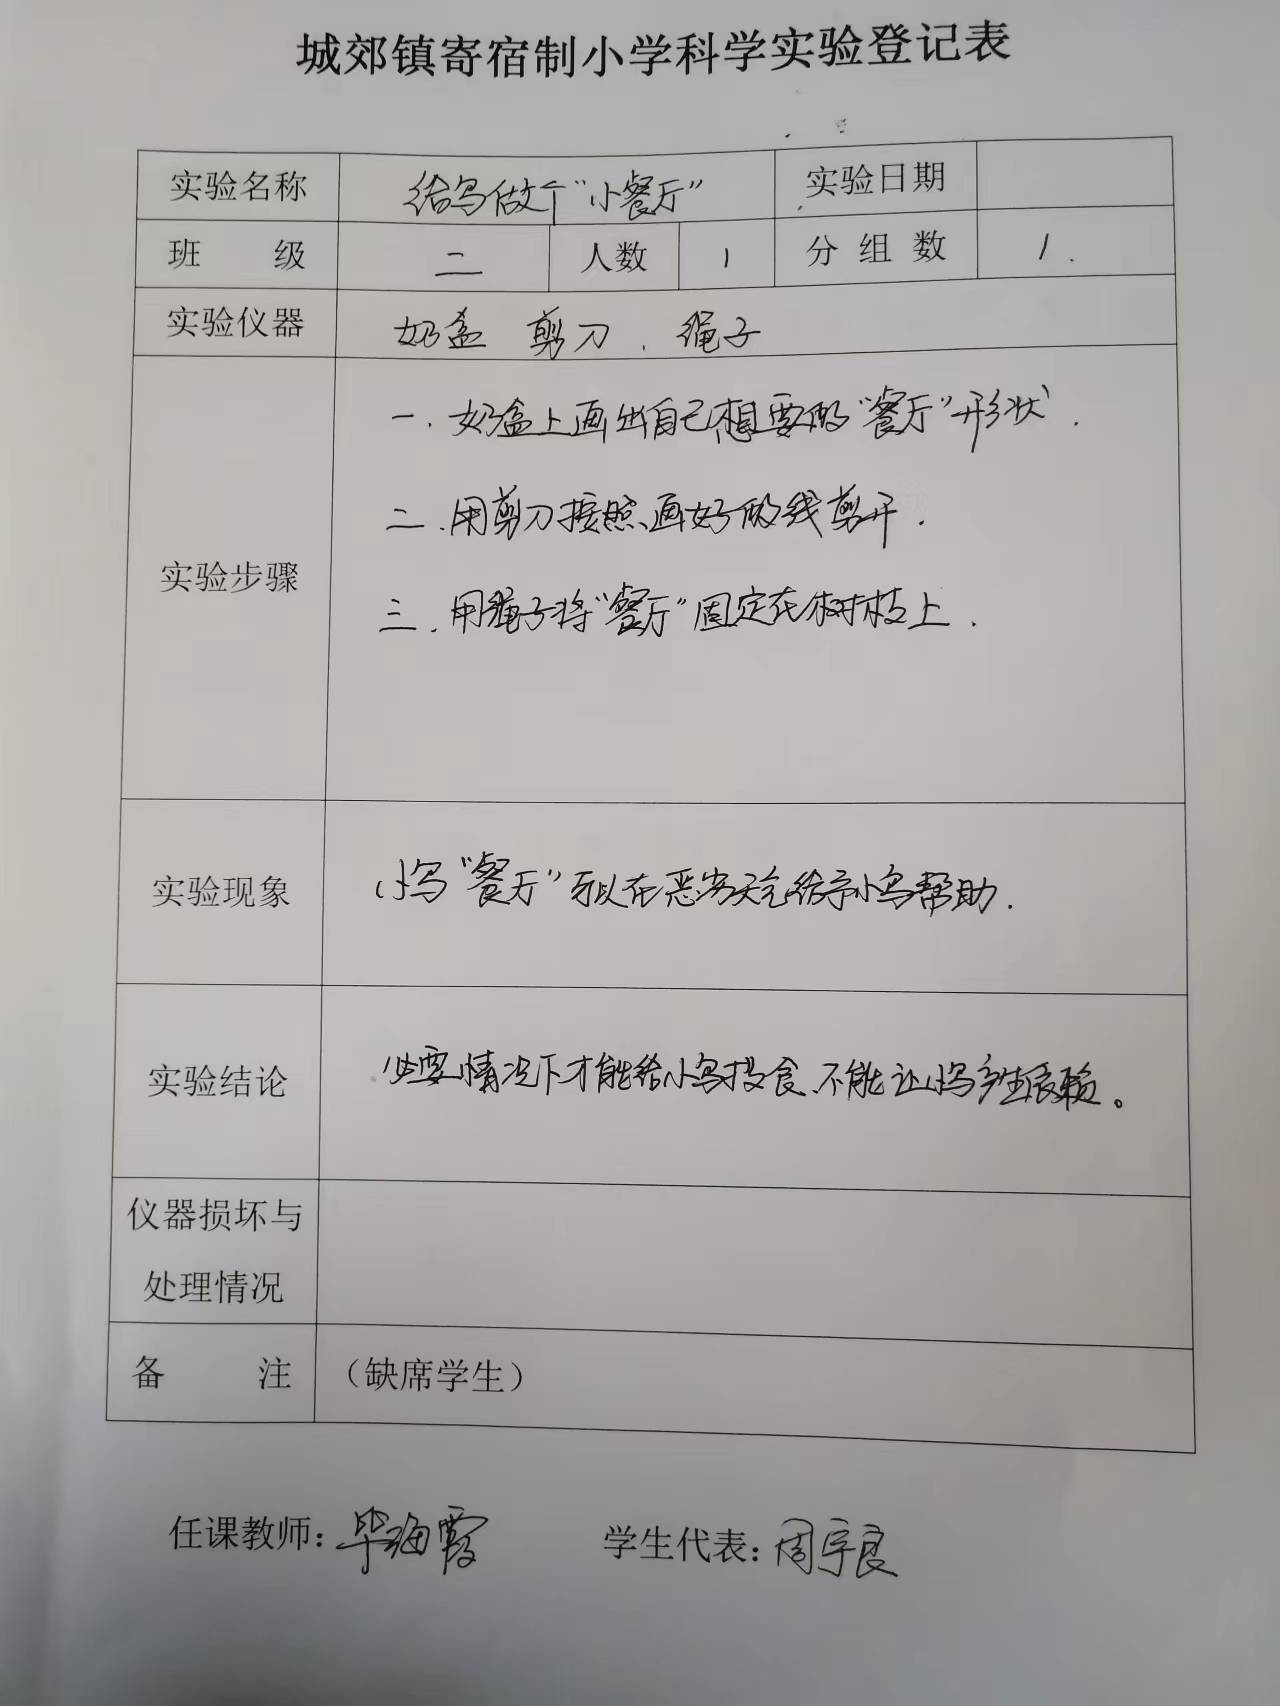 城郊镇寄宿制小学科学实验登记表
实验名称 给鸟做个“小餐厅” 实验日期
班 级 二 人数 1 分组数 1.
实验仪器 奶盒 剪刀. 绳子
一. 奶盒上画出自己想要的“餐厅”形状.
二. 用剪刀按照画好的线剪开.
实验步骤
三. 用绳子将“餐厅”固定在树枝上.
实验现象 小鸟“餐厅”可以在恶劣天气给予小鸟帮助.
实验结论 必要情况下才能给小鸟投食、不能让小鸟产生依赖。
仪器损坏与
处理情况
备 注 （缺席学生）
任课教师：毕海霞 学生代表：周宇良